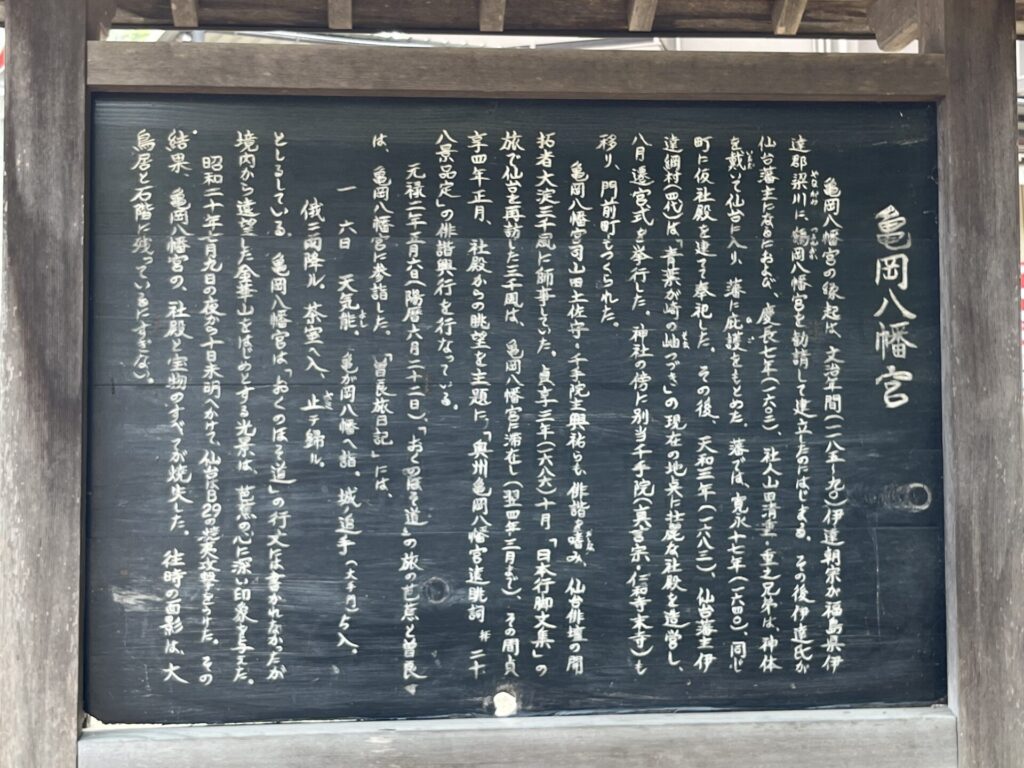 亀岡八幡宮
亀岡八幡宮の縁起は、文治年間(一一八五〜九〇)伊達朝宗が福島県伊
達郡梁川に、鶴岡八幡宮を勧請して建立したのにはじまる。その後伊達氏が
仙台藩主になるにおよび、慶長七年(一六〇二)、社人山田清重・重之兄弟は、神体
を戴いて仙台に入り、藩に庇護をもとめた。藩では、寛永十七年(一六四〇)、同じ
町に仮社殿を建て奉祀した。その後、天和三年(一六八三)、仙台藩主伊
達綱村(四代)は「青葉が崎の岫つづき」の現在の地点に壮麗な社殿を造営し、
八月遷宮式を挙行した。神社の傍に別当千手院(真言宗・仁和寺末寺)も
移り、門前町もつくられた。
亀岡八幡宮宮司山田土佐守・千手院之興祐らも、俳諧を嗜み、仙台俳壇の開
拓者大淀三千風に師事していた。貞享三年(一六八六)十月「日本行脚文集」の
旅で仙台を再訪した三千風は、亀岡八幡宮に滞在し(翌四年三月まで)、その間貞
享四年正月、社殿からの眺望を主題に、「奥州亀岡八幡宮遠眺詞 并 二十
八景品定」の俳諧興行を行なっている。
元禄二年五月六日(陽暦六月二十二日)、「おくのほそ道」の旅の芭蕉と曽良
は、亀岡八幡宮に参詣した。「曽良旅日記」には、
一 六日 天気能。亀が岡八幡へ詣。城ノ追手(大手門)ゟ入。
俄ニ雨降ル。茶室へ入、止テ帰ル。
としるしている。亀岡八幡宮は「おくのほそ道」の行文には書かれなかったが
境内から遠望した金華山をはじめとする光景は、芭蕉の心に深い印象を与えた。
昭和二十年七月九日の夜から十日未明へかけて、仙台はB29の爆撃をうけた。その
結果、亀岡八幡宮の、社殿と宝物のすべてが焼失した。往時の面影は、大
鳥居と石階に残っているにすぎない。